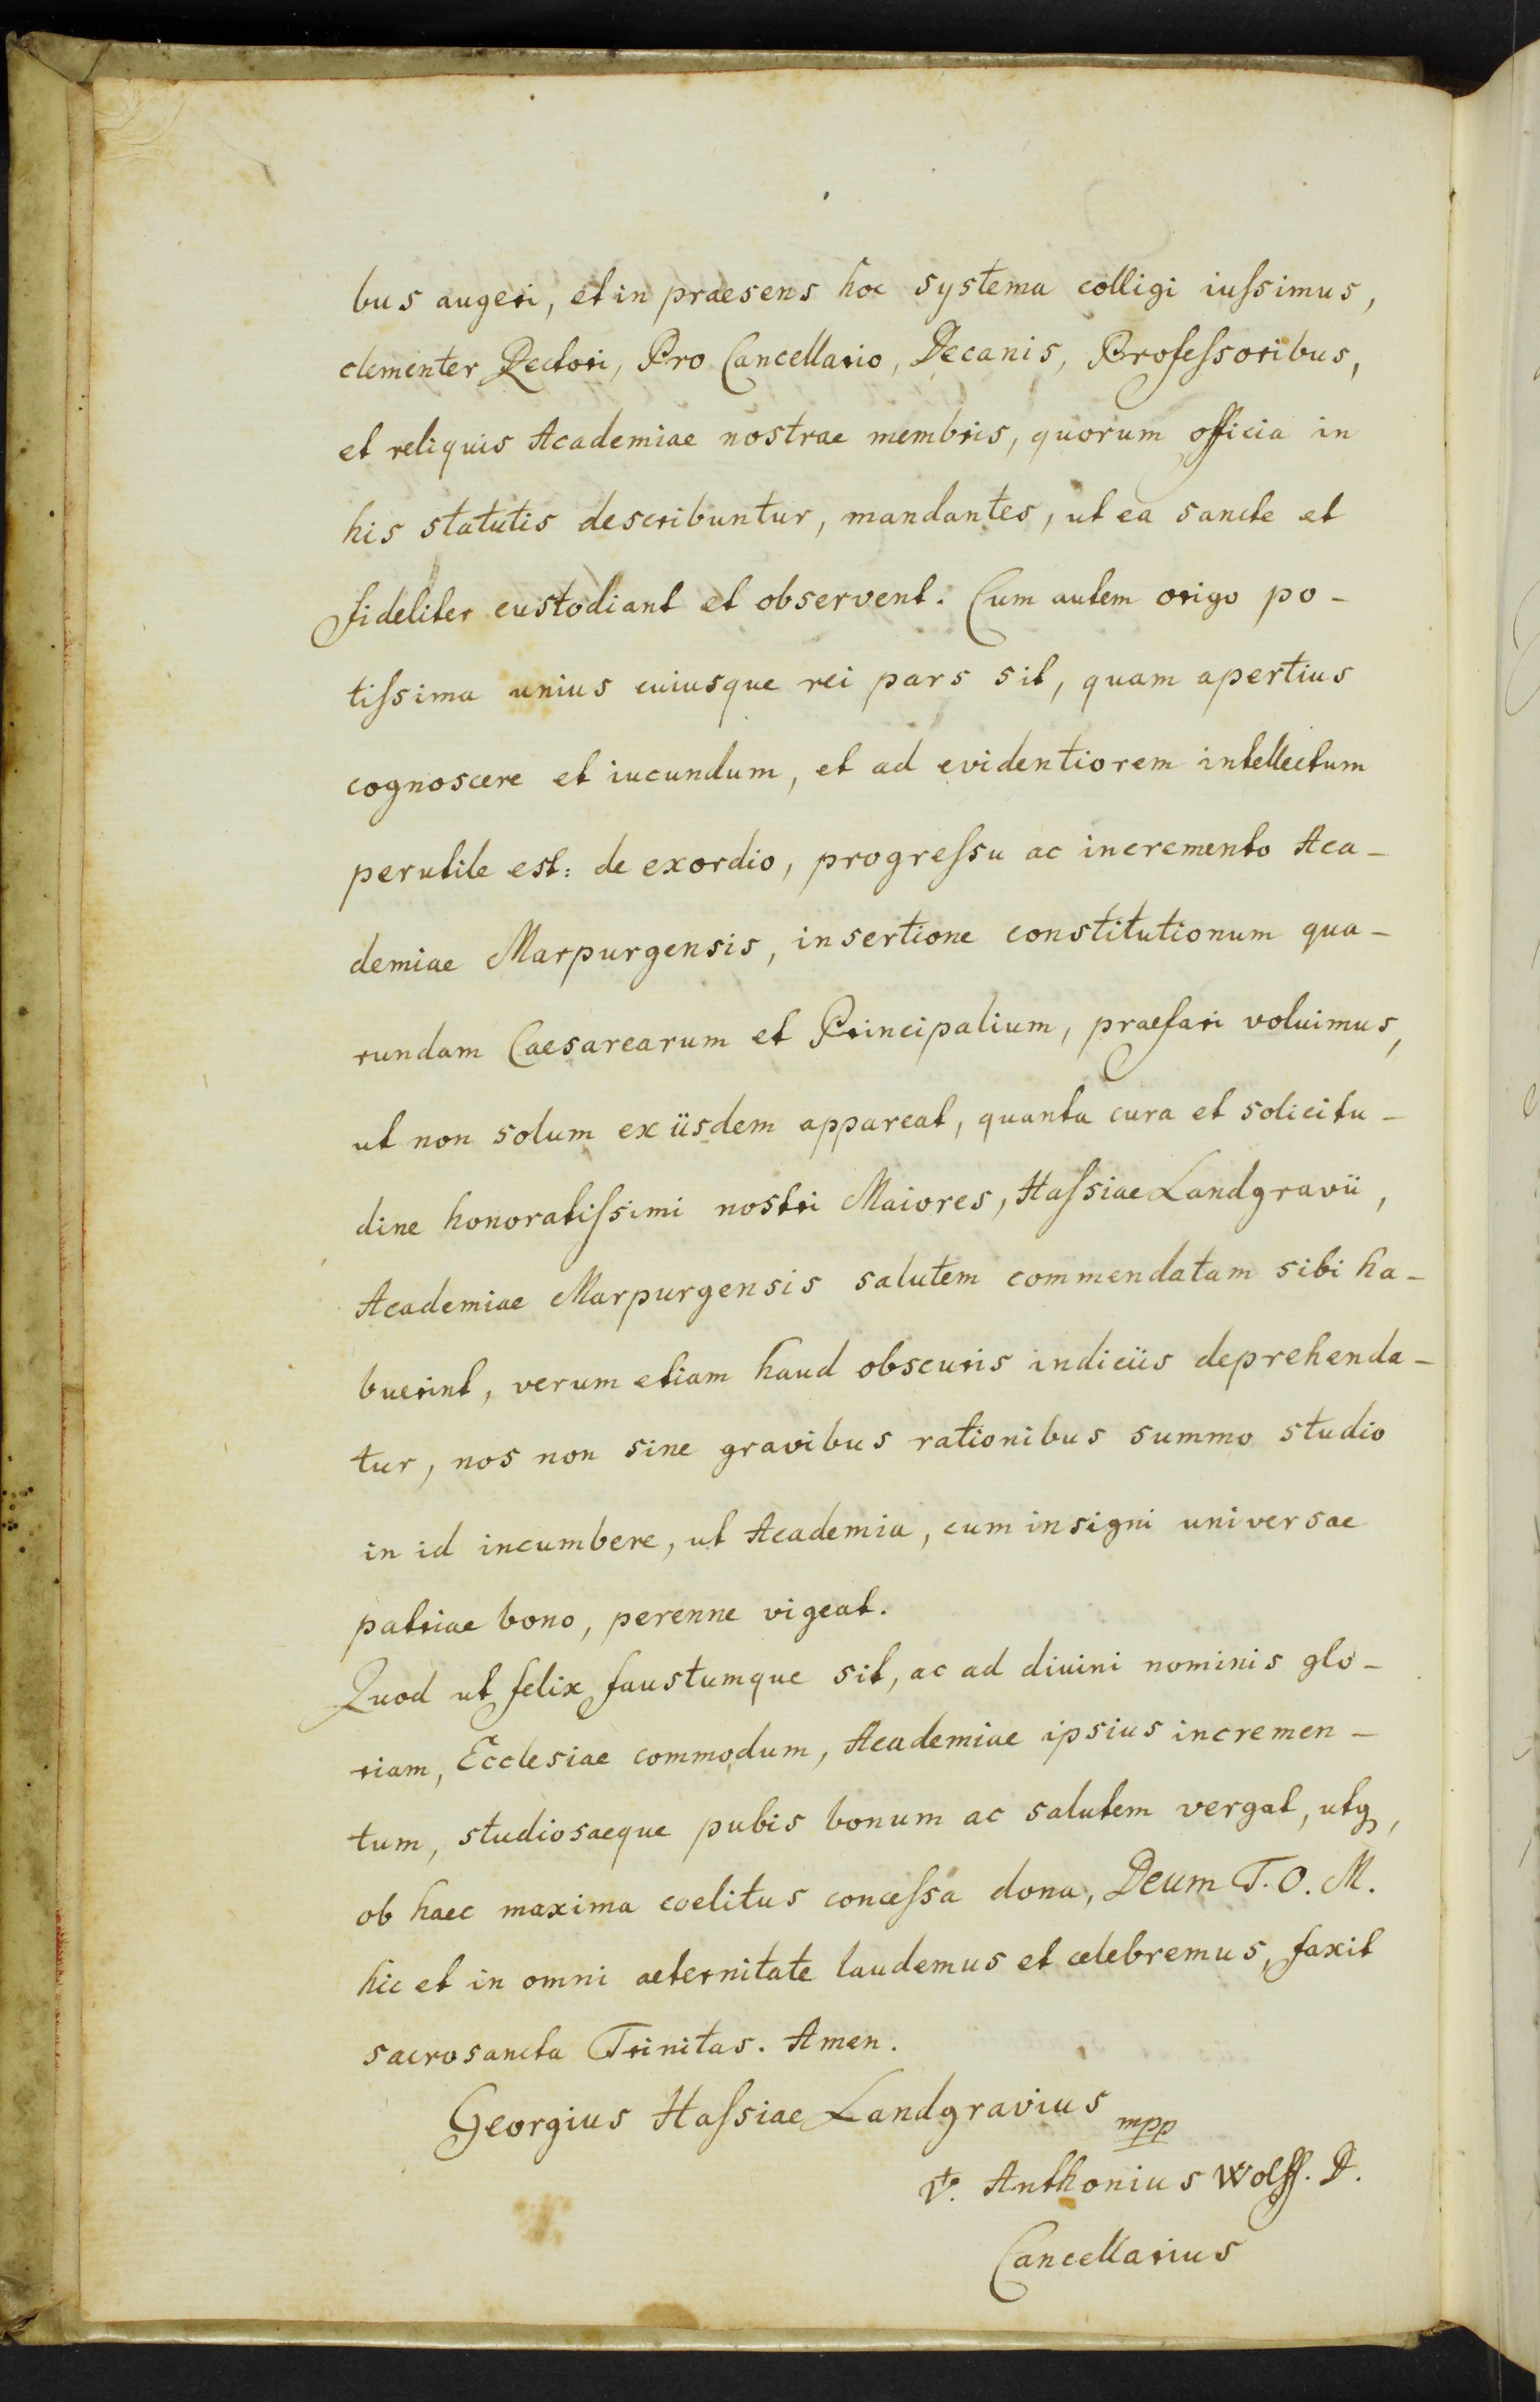 bus augeri, et in praesens hoc systema colligi iuſsimus,
clementer Rectori, Pro Cancellario, Decanis, Profeſsoribus,
et reliquis Academiae nostrae membris, quorum officia in
his statutis describuntur, mandantes, ut ea sancte et
fideliter custodiant et observent. Cum autem origo po-
tiſsima unius cuiusque rei pars sit, quam apertius
cognoscere et iucundum, et ad evidentiorem intellectum
perutile est: de exordio, progreſsu ac incremento Aca-
demiae Marpurgensis, insertione constitutionum qua-
rundam Caesarearum et Principalium, praefari voluimus,
ut non solum ex iisdem appareat, quanta cura et solicitu-
dine honoratiſsimi nostri Maiores, Haſsiae Landgravii,
Academiae Marpurgensis salutem commendatam sibi ha-
buerint, verum etiam haud obscuris indiciis deprehenda-
tur, nos non sine gravibus rationibus summo studio
in id incumbere, ut Academia, cum insigni universae
patriae bono, perenne vigeat.
Quod ut felix faustumque sit, ac ad divini nominis glo-
riam, Ecclesiae commodum, Academiae ipsius incremen-
tum, studiosaeque pubis bonum ac salutem vergat, utq,
ob haec maxima coelitus conceſsa dona, Deum T. O. M.
hic et in omni aeternitate laudemus et celebremus, faxit
sacrosancta Trinitas. Amen.
Georgius Haſsiae Landgravius
mpp
Vt. Anthonius Wolff. D.
Cancellarius